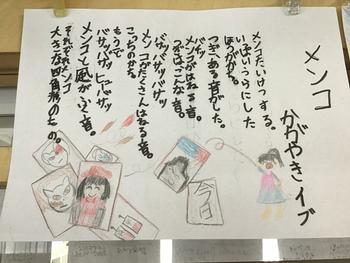 メンコ
かがやきイブ
メンコだいけっする。
いっぱいうらにした
ほうがかち。
つぎ、ある音がした。
バサッ
メンコがはねる音。
つぎは、こんな音。
バサッバサッバサッ
メンコがたくさんはねる音。
こっちのかち。
もうで
バサッバサッヒューバサッ
メンコと風がふく音。
それぞれメンコ
大きな四角形のもの。
今日